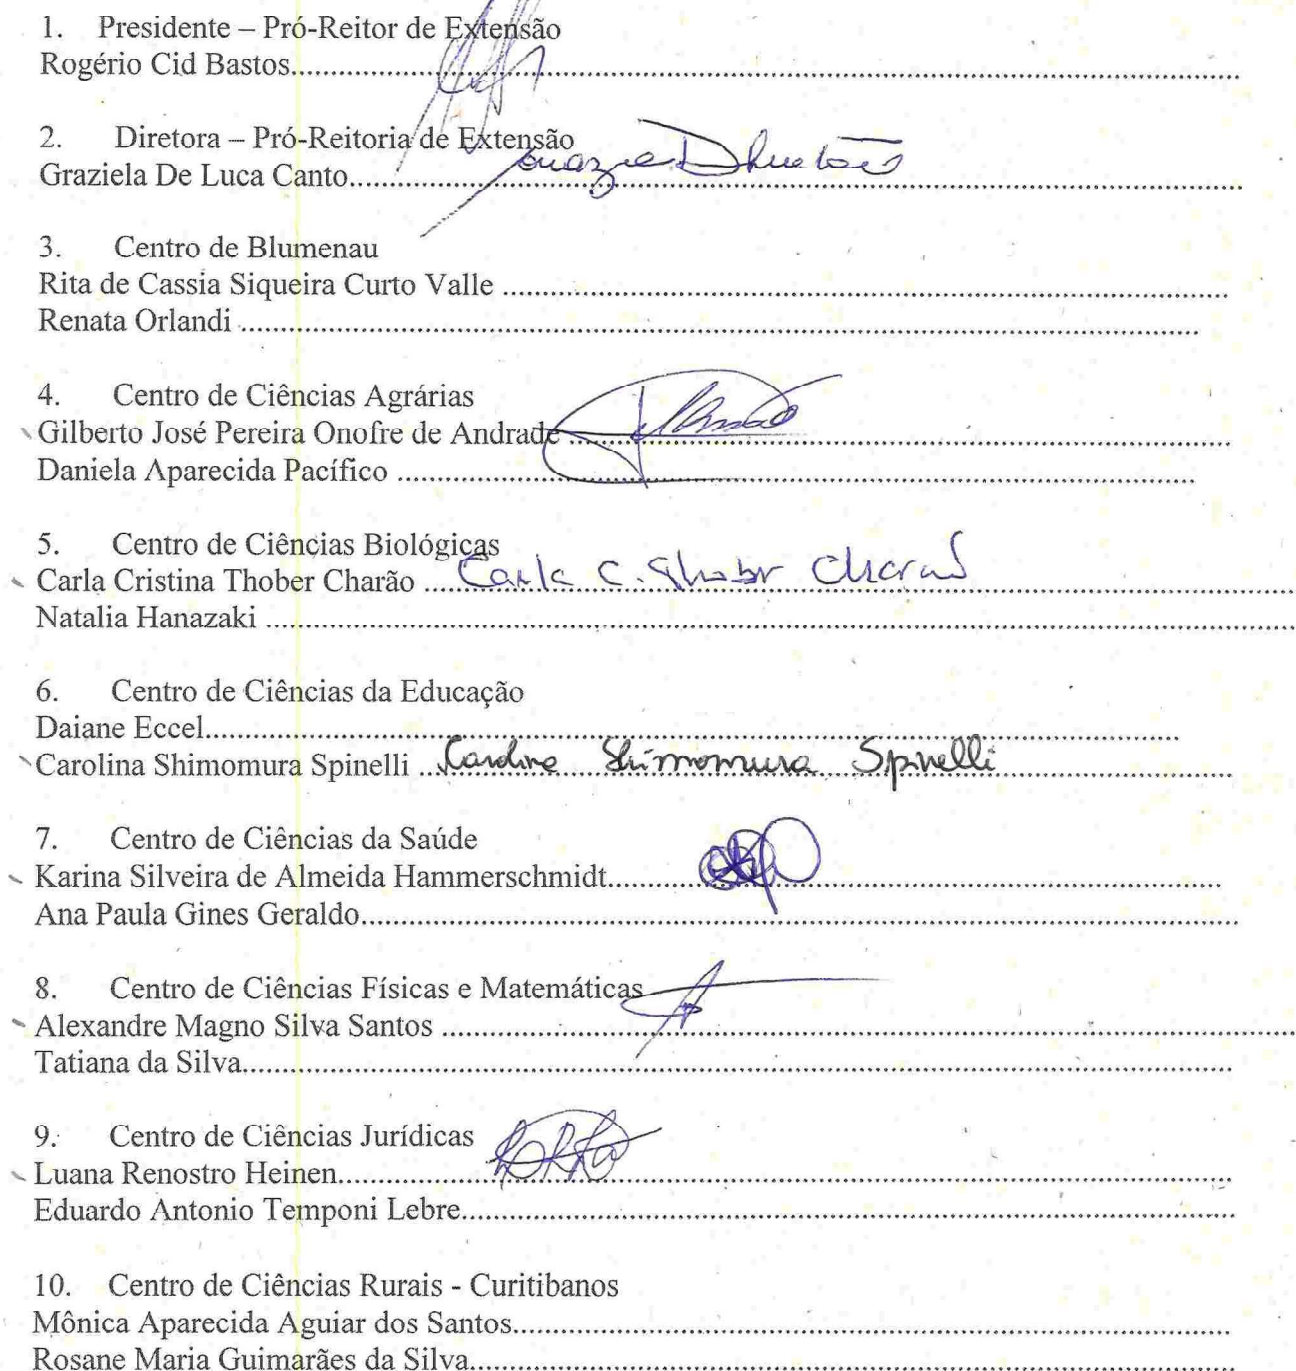 1. Presidente – Pró-Reitor de Extensão
Rogério Cid Bastos..........
2. Diretora – Pró-Reitoria de Extensão
Graziela De Luca Canto..........
3. Centro de Blumenau
Rita de Cassia Siqueira Curto Valle ..........
Renata Orlandi ..........
4. Centro de Ciências Agrárias
Gilberto José Pereira Onofre de Andrade ..........
Daniela Aparecida Pacífico ..........
5. Centro de Ciências Biológicas
Carla Cristina Thober Charão .......... Carla C. Thober Charão
Natalia Hanazaki ..........
6. Centro de Ciências da Educação
Daiane Eccel..........
Carolina Shimomura Spinelli .......... Carolina Shimomura Spinelli
7. Centro de Ciências da Saúde
Karina Silveira de Almeida Hammerschmidt..........
Ana Paula Gines Geraldo..........
8. Centro de Ciências Físicas e Matemáticas
Alexandre Magno Silva Santos ..........
Tatiana da Silva..........
9. Centro de Ciências Jurídicas
Luana Renostro Heinen..........
Eduardo Antonio Temponi Lebre..........
10. Centro de Ciências Rurais - Curitibanos
Mônica Aparecida Aguiar dos Santos..........
Rosane Maria Guimarães da Silva..........